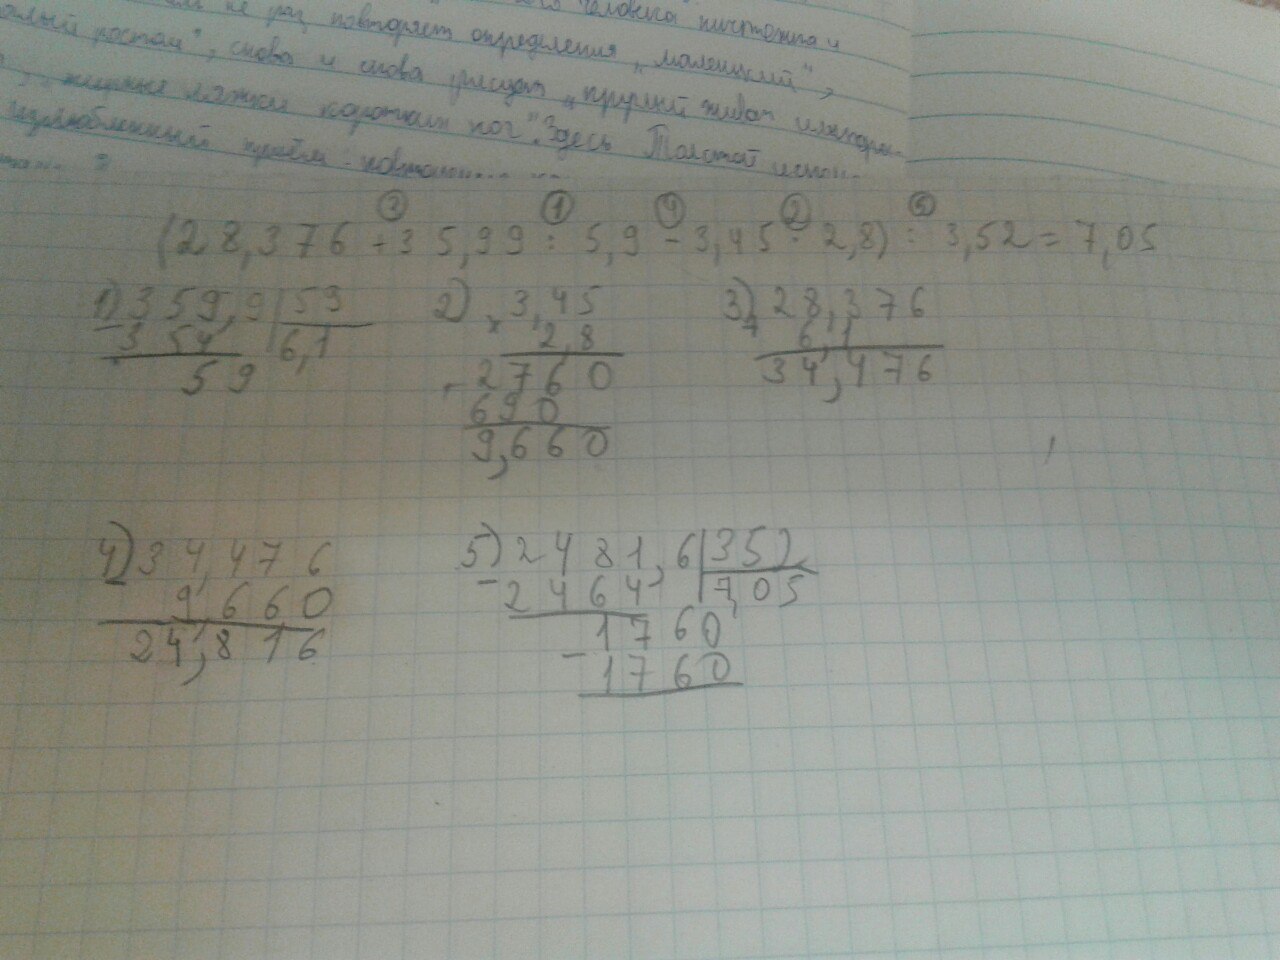 не раз повторяет определения „маленький",
снова и снова рисует „круглый живот
жирные ляжки коротких ног". Здесь Толстой
излюбленный приём
(28,376 + 35,99 : 5,9 - 3,45 · 2,8) : 3,52 = 7,05
3 1 4 2 5
1) 359,9 | 59 2) 3,45 3) 28,376
- 354 6,1 × 2,8 + 6,1
59 2760 34,476
+ 690
9,660
4) 34,476 5) 2481,6 | 352
- 9,660 - 2464 7,05
24,816 1760
- 1760